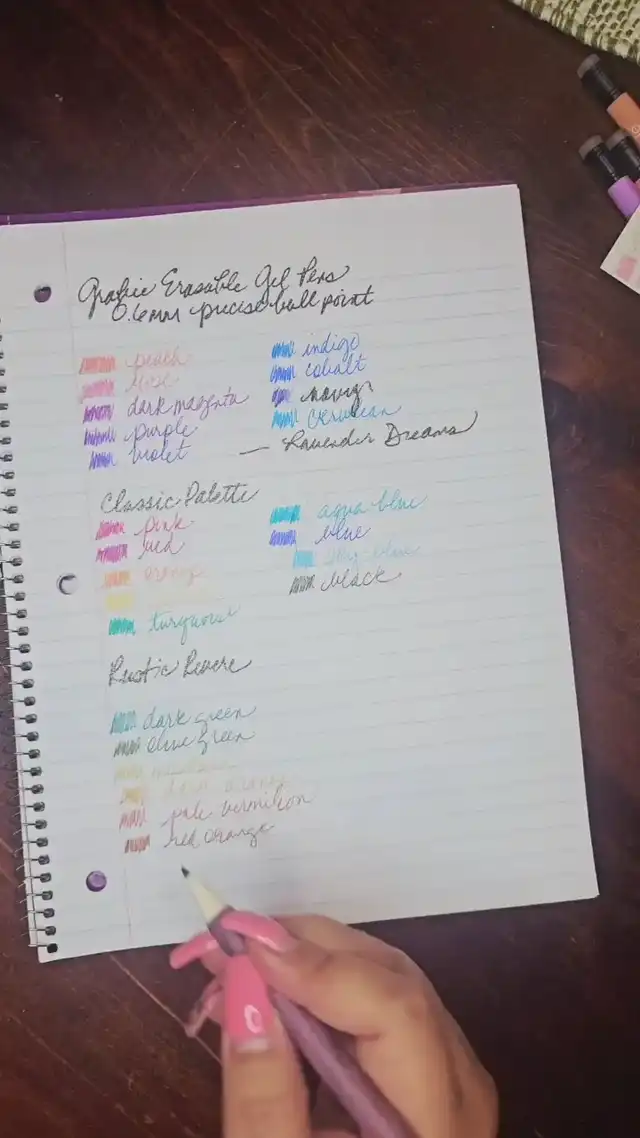 Grafic Erasable Gel Pens
0.6mm precise ball point
peach
rose
dark magenta
purple
violet
indigo
cobalt
navy
cerulean
— Lavender Dreams
Classic Palette
pink
red
orange
turquoise
aqua blue
blue
sky blue
black
Rustic Revere
dark green
olive green
pale vermilion
red orange